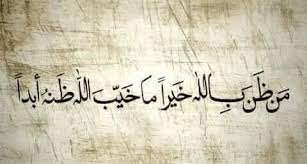 مَن ظَنَ بِاللهِ خَيراً مَا خَيّبَ اللهُ ظَنهُ أبداً